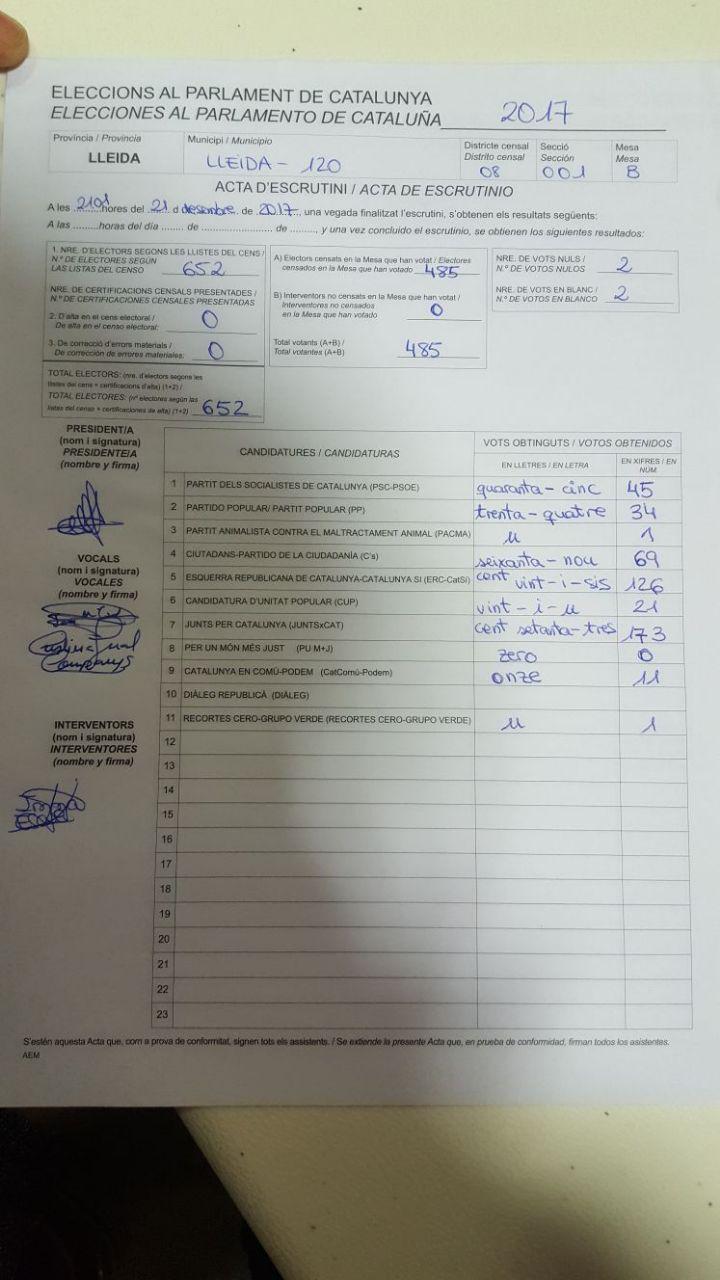 ELECCIONS AL PARLAMENT DE CATALUNYA
ELECCIONES AL PARLAMENTO DE CATALUÑA 2017
Provincia / Provincia
LLEIDA
Municipi / Municipio
LLEIDA - 120
Districte censal
Distrito censal
08
Secció
Sección
001
Mesa
Mesa
B
ACTA D'ESCRUTINI / ACTA DE ESCRUTINIO
A les hores del 21 d desembre de 2017, una vegada finalitzat l'escrutini, s'obtenen els resultats següents:
A las ........horas del día ....... de ........................ de ........., y una vez concluido el escrutinio, se obtienen los siguientes resultados:
1. NRE. D'ELECTORS SEGONS LES LLISTES DEL CENS /
N.º DE ELECTORES SEGÚN
LAS LISTAS DEL CENSO 652
NRE. DE CERTIFICACIONS CENSALS PRESENTADES /
N.º DE CERTIFICACIONES CENSALES PRESENTADAS
2. D'alta en el cens electoral /
De alta en el censo electoral: 0
3. De correcció d'errors materials /
De corrección de errores materiales: 0
TOTAL ELECTORS: (nre. d'electors segons les
llistes del cens + certificacions d'alta) (1+2) /
TOTAL ELECTORES: (nº electores según las
listas del censo + certificaciones de alta) (1+2) 652
A) Electors censats en la Mesa que han votat / Electores
censados en la Mesa que han votado 485
B) Interventors no censats en la Mesa que han votat /
Interventores no censados
en la Mesa que han votado 0
Total votants (A+B) /
Total votantes (A+B) 485
NRE. DE VOTS NULS /
N.º DE VOTOS NULOS 2
NRE. DE VOTS EN BLANC /
N.º DE VOTOS EN BLANCO 2
PRESIDENT/A
(nom i signatura)
PRESIDENTE/A
(nombre y firma)
VOCALS
(nom i signatura)
VOCALES
(nombre y firma)
INTERVENTORS
(nom i signatura)
INTERVENTORES
(nombre y firma)
CANDIDATURES / CANDIDATURAS
VOTS OBTINGUTS / VOTOS OBTENIDOS
EN LLETRES / EN LETRA
EN XIFRES / EN NÚM
1 PARTIT DELS SOCIALISTES DE CATALUNYA (PSC-PSOE) quaranta-cinc 45
2 PARTIDO POPULAR/ PARTIT POPULAR (PP) trenta-quatre 34
3 PARTIT ANIMALISTA CONTRA EL MALTRACTAMENT ANIMAL (PACMA) u 1
4 CIUTADANS-PARTIDO DE LA CIUDADANÍA (C's) seixanta-nou 69
5 ESQUERRA REPUBLICANA DE CATALUNYA-CATALUNYA SÍ (ERC-CatSí) cent vint-i-sis 126
6 CANDIDATURA D'UNITAT POPULAR (CUP) vint-i-u 21
7 JUNTS PER CATALUNYA (JUNTSxCAT) cent setanta-tres 173
8 PER UN MÓN MÉS JUST (PU M+J) zero 0
9 CATALUNYA EN COMÚ-PODEM (CatComú-Podem) onze 11
10 DIÀLEG REPUBLICÀ (DIÀLEG)
11 RECORTES CERO-GRUPO VERDE (RECORTES CERO-GRUPO VERDE) u 1
12
13
14
15
16
17
18
19
20
21
22
23
S'estén aquesta Acta que, com a prova de conformitat, signen tots els assistents. / Se extiende la presente Acta que, en prueba de conformidad, firman todos los asistentes.
AEM